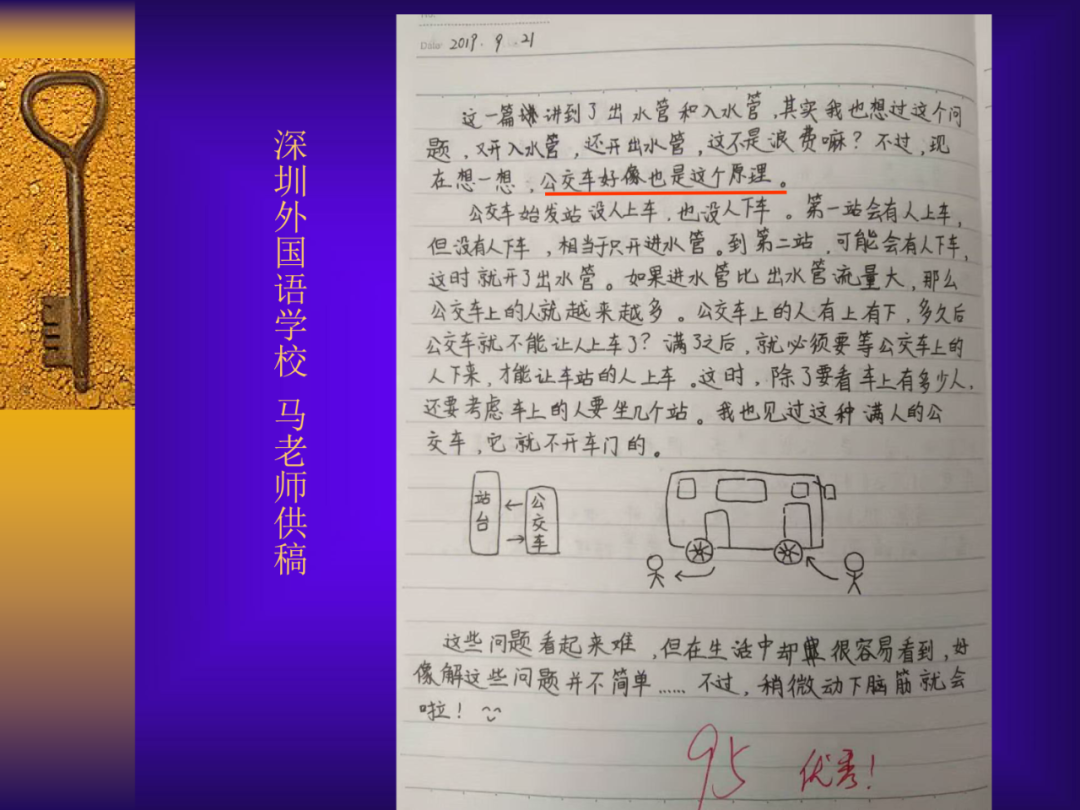 深圳外国语学校 马老师供稿
Date 2019.9.21
这一篇讲到了出水管和入水管,其实我也想过这个问
题,又开入水管,还开出水管,这不是浪费嘛?不过,现
在想一想,公交车好像也是这个原理。
公交车始发站没人上车,也没人下车。第一站会有人上车,
但没有人下车,相当于只开进水管。到第二站,可能会有人下车,
这时就开了出水管。如果进水管比出水管流量大,那么
公交车上的人就越来越多。公交车上的人有上有下,多久后
公交车就不能让人上车了?满了之后,就必须要等公交车上的
人下来,才能让车站的人上车。这时,除了要看车上有多少人,
还要考虑车上的人要坐几个站。我也见过这种满人的公
交车,它就不开车门的。
站台
公交车
这些问题看起来难,但在生活中却很容易看到,好
像解这些问题并不简单……不过,稍微动下脑筋就会
啦!
95 优秀!